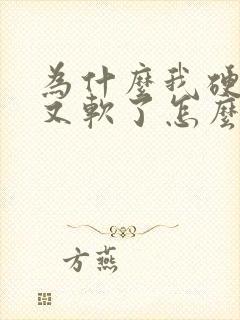 為什麼我硬
又軟了怎麼
方燕